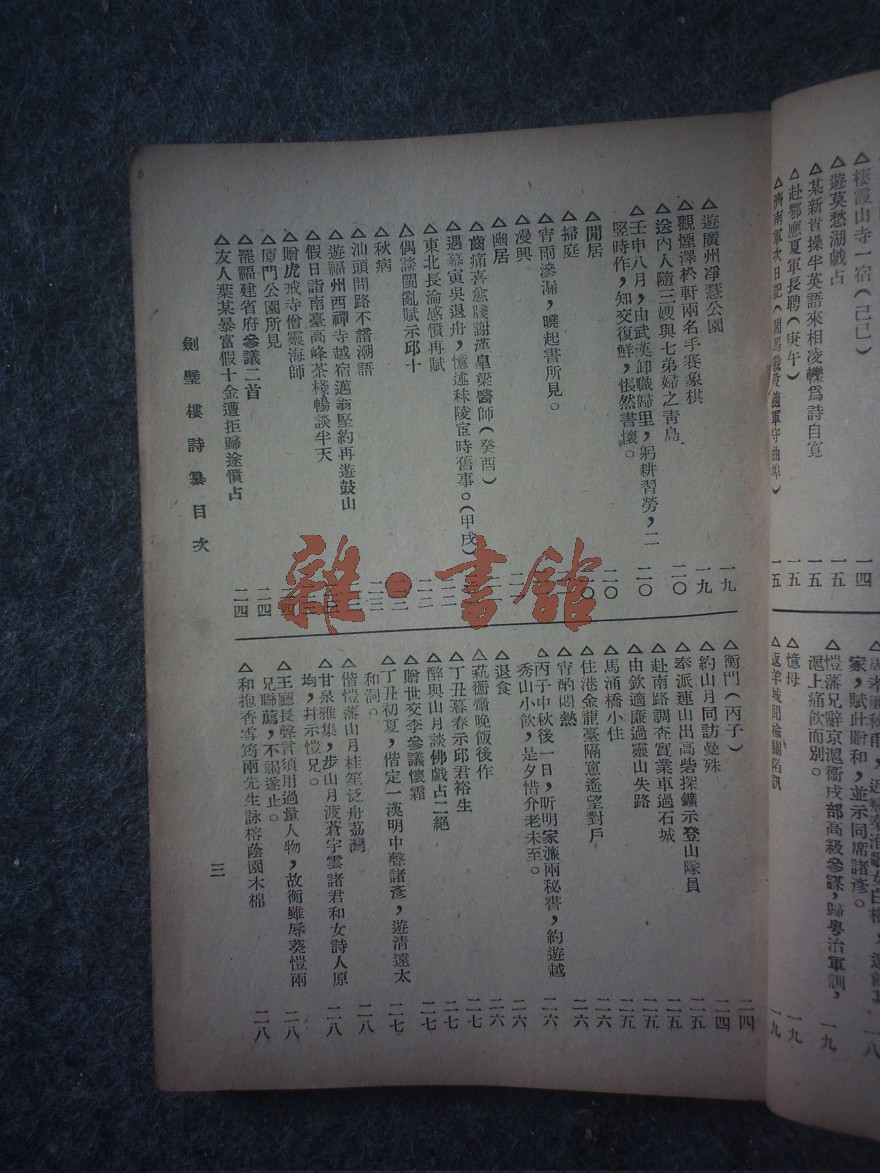 棲霞山寺一宿(己巳)
一四
△遊莫愁湖戲占
一五
△某新貴操半英語來相凌轢爲詩自寬
一五
△赴鄂應夏軍長聘(庚午)
一五
一五
家,賦此贈和,並示同席諸彥。
一八
愷藩兄辭京滬衞戍部高級參謀,歸粤治軍訓,
滬上痛飲而別。
一九
△憶母
一九
一九
△遊廣州淨慧公園
一九
△觀煙澤松軒兩名手賽象棋
一九
△送內人隨三嫂與七弟婦之靑島
二〇
△壬申八月,由武漢卸職歸里,躬耕習勞,二
豎時作,知交復鮮,悵然書懷。
二〇
△閒居
二〇
△掃庭
二〇
△宵雨滲漏,曉起書所見。
△漫興
△幽居
△齒痛喜愈賤謝漢臯梁醫師(癸酉)
△遇幕寅吳退舟,憶述秣陵宦時舊事。(甲戌)
△東北長淪感憤再賦
△偶談閩亂賦示邱十
△秋病
△汕頭問路不譜潮語
△遊福州西禪寺越宿邁翁堅約再遊鼓山
△假日詣南臺高峰茶棧暢談半天
△贈虎戒寺僧靈海師
△厦門公園所見
△罷福建省府參議二首
二四
△友人葉某暴富假十金遭拒歸途憤占
二四
劍璧樓詩纂目次
△衡門(丙子)
二四
△約山月同訪曼殊
二四
△奉派連山出高砦探鑛示登山隊員
二五
△赴南路調查實業車過石城
二五
△由欽適廉過靈山失路
二五
△馬涌橋小住
二五
△住港金龍臺隔窻遙望對戶
二六
△宵酌悶熱
二六
△丙子中秋後一日,昕明家濂兩秘書,約遊越
秀山小飮,是夕惜介老未至。
二六
△退食
二六
△菰薌齋晚飯後作
二六
△丁丑暮春示邱君裕生
二七
△醉與山月談佛戲占二絕
二七
△贈世交李參議懷霜
二七
△丁丑初夏,偕定一漢明中聲諸彥,遊淸遠太
和洞。
二七
△偕愷藩山月桂笙泛舟荔灣
二八
△甘泉雅集,步山月渡蒼宇雲諸君和女詩人原
均,幷示愷兄。
二八
△王廳長聲言須用過量人物,故衡雖辱葵愷兩
兄聯薦,不謁遂止。
二八
△和抱香雪筠兩先生詠榕蔭園木棉
二八
三
雜·書舘